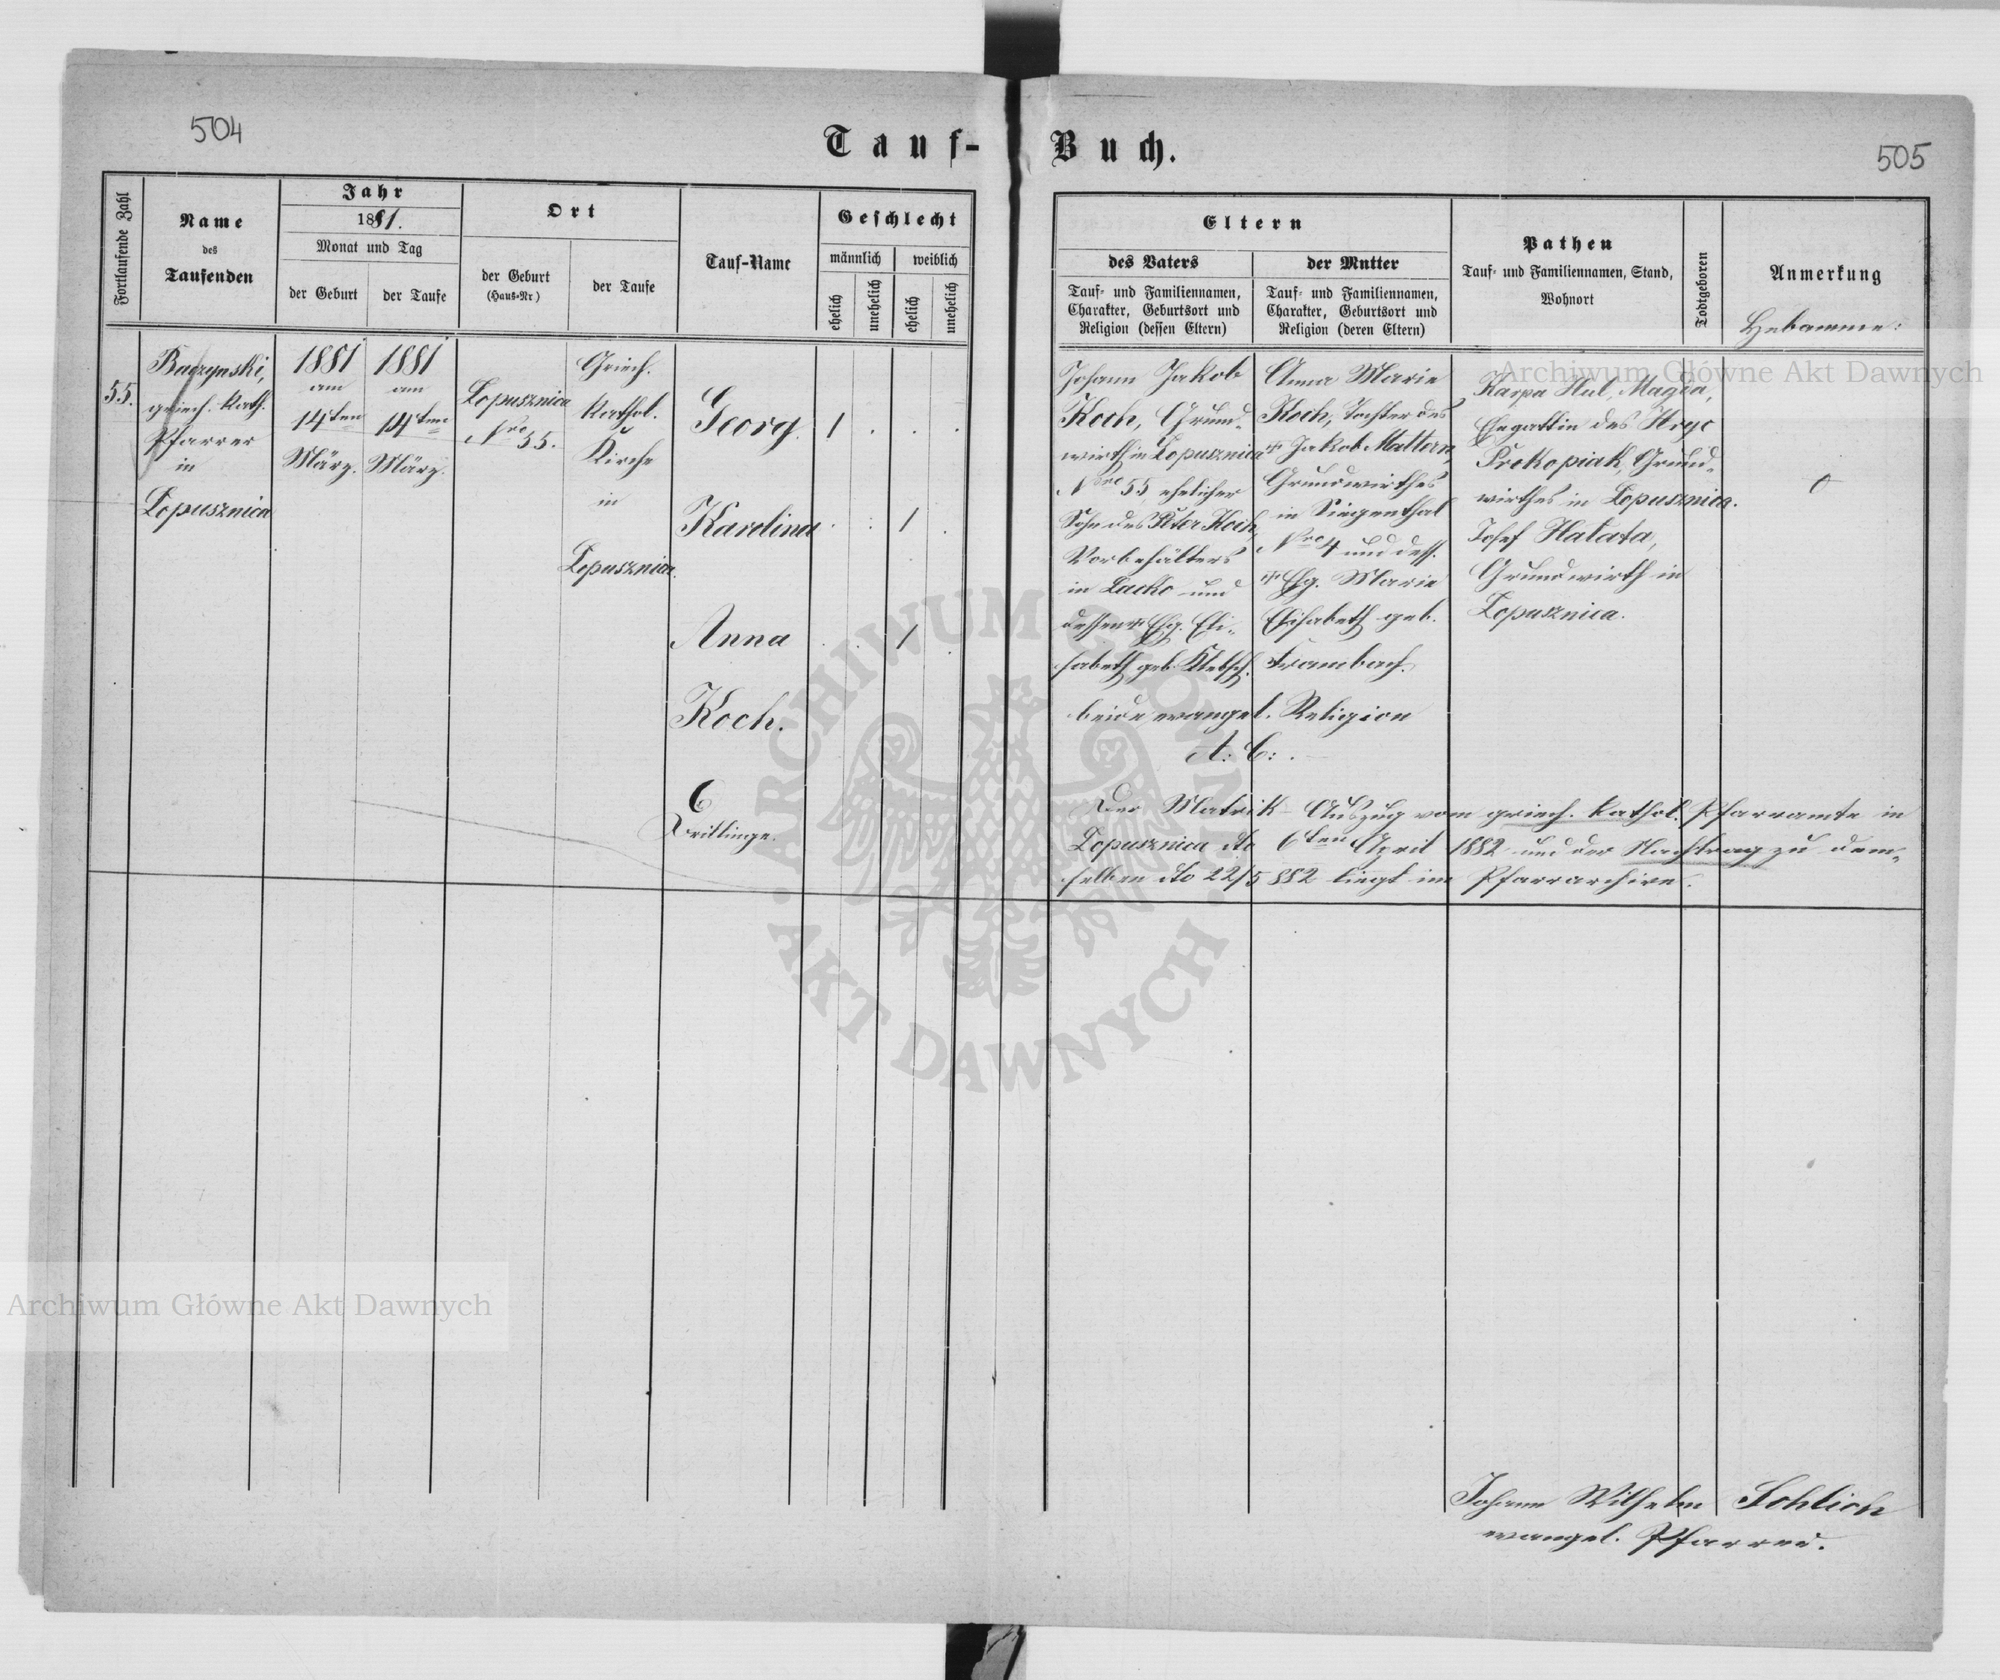 504
Tauf-
Buch.
505
Fortlaufende Zahl
Name
des
Taufenden
Jahr
1881.
Monat und Tag
der Geburt
der Taufe
Ort
der Geburt
(Haus-Nr)
der Taufe
Tauf-Name
Geschlecht
männlich
weiblich
ehelich
unehelich
ehelich
unehelich
55.
Baczynski,
griech. kath.
Pfarrer
in
Lopusznica
1881
am
14ten
März.
1881
am
14ten
März.
Lopusznica
Nro 55.
Griech.
kathol.
Kirche
in
Lopusznica.
Georg
1
Karolina
1
Anna
1
Koch.
Drillinge.
Eltern
des Vaters
Tauf- und Familiennamen,
Charakter, Geburtsort und
Religion (dessen Eltern)
der Mutter
Tauf- und Familiennamen,
Charakter, Geburtsort und
Religion (deren Eltern)
Pathen
Tauf- und Familiennamen, Stand,
Wohnort
Todtgeboren
Anmerkung
Hebamme:
Johann Jakob
Koch, Grund-
wirth in Lopusznica
Nro 55, ehelicher
Sohn des Peter Koch,
Vorbehälters
in Lacko und
dessen + Ehg. Eli-
sabeth geb. Kletsch.
Anna Marie
Koch, Tochter des
+ Jakob Mattern,
Grundwirthes
in Siegenthal
Nro 4 und dess.
+ Ehg. Marie
Elisabeth geb.
Trambach.
beide evangel. Religion
A: C: .
Karpa Hul, Magda,
Ehegattin des Hryc
Prokopiak, Grund-
wirthes in Lopusznica.
Josef Halata,
Grundwirth in
Lopusznica.
0
Der Matrik-Auszug vom griech. kathol. Pfarramte in
Lopusznica dto 6ten April 1882 und der Nachtrag zu dem-
selben dto 22/5 882 liegt im Pfarrarchive.
Johann Wilhelm Schlich
evangel. Pfarrer.
Archiwum Główne Akt Dawnych
Archiwum Główne Akt Dawnych
ARCHIWUM GŁÓWNE
AKT DAWNYCH